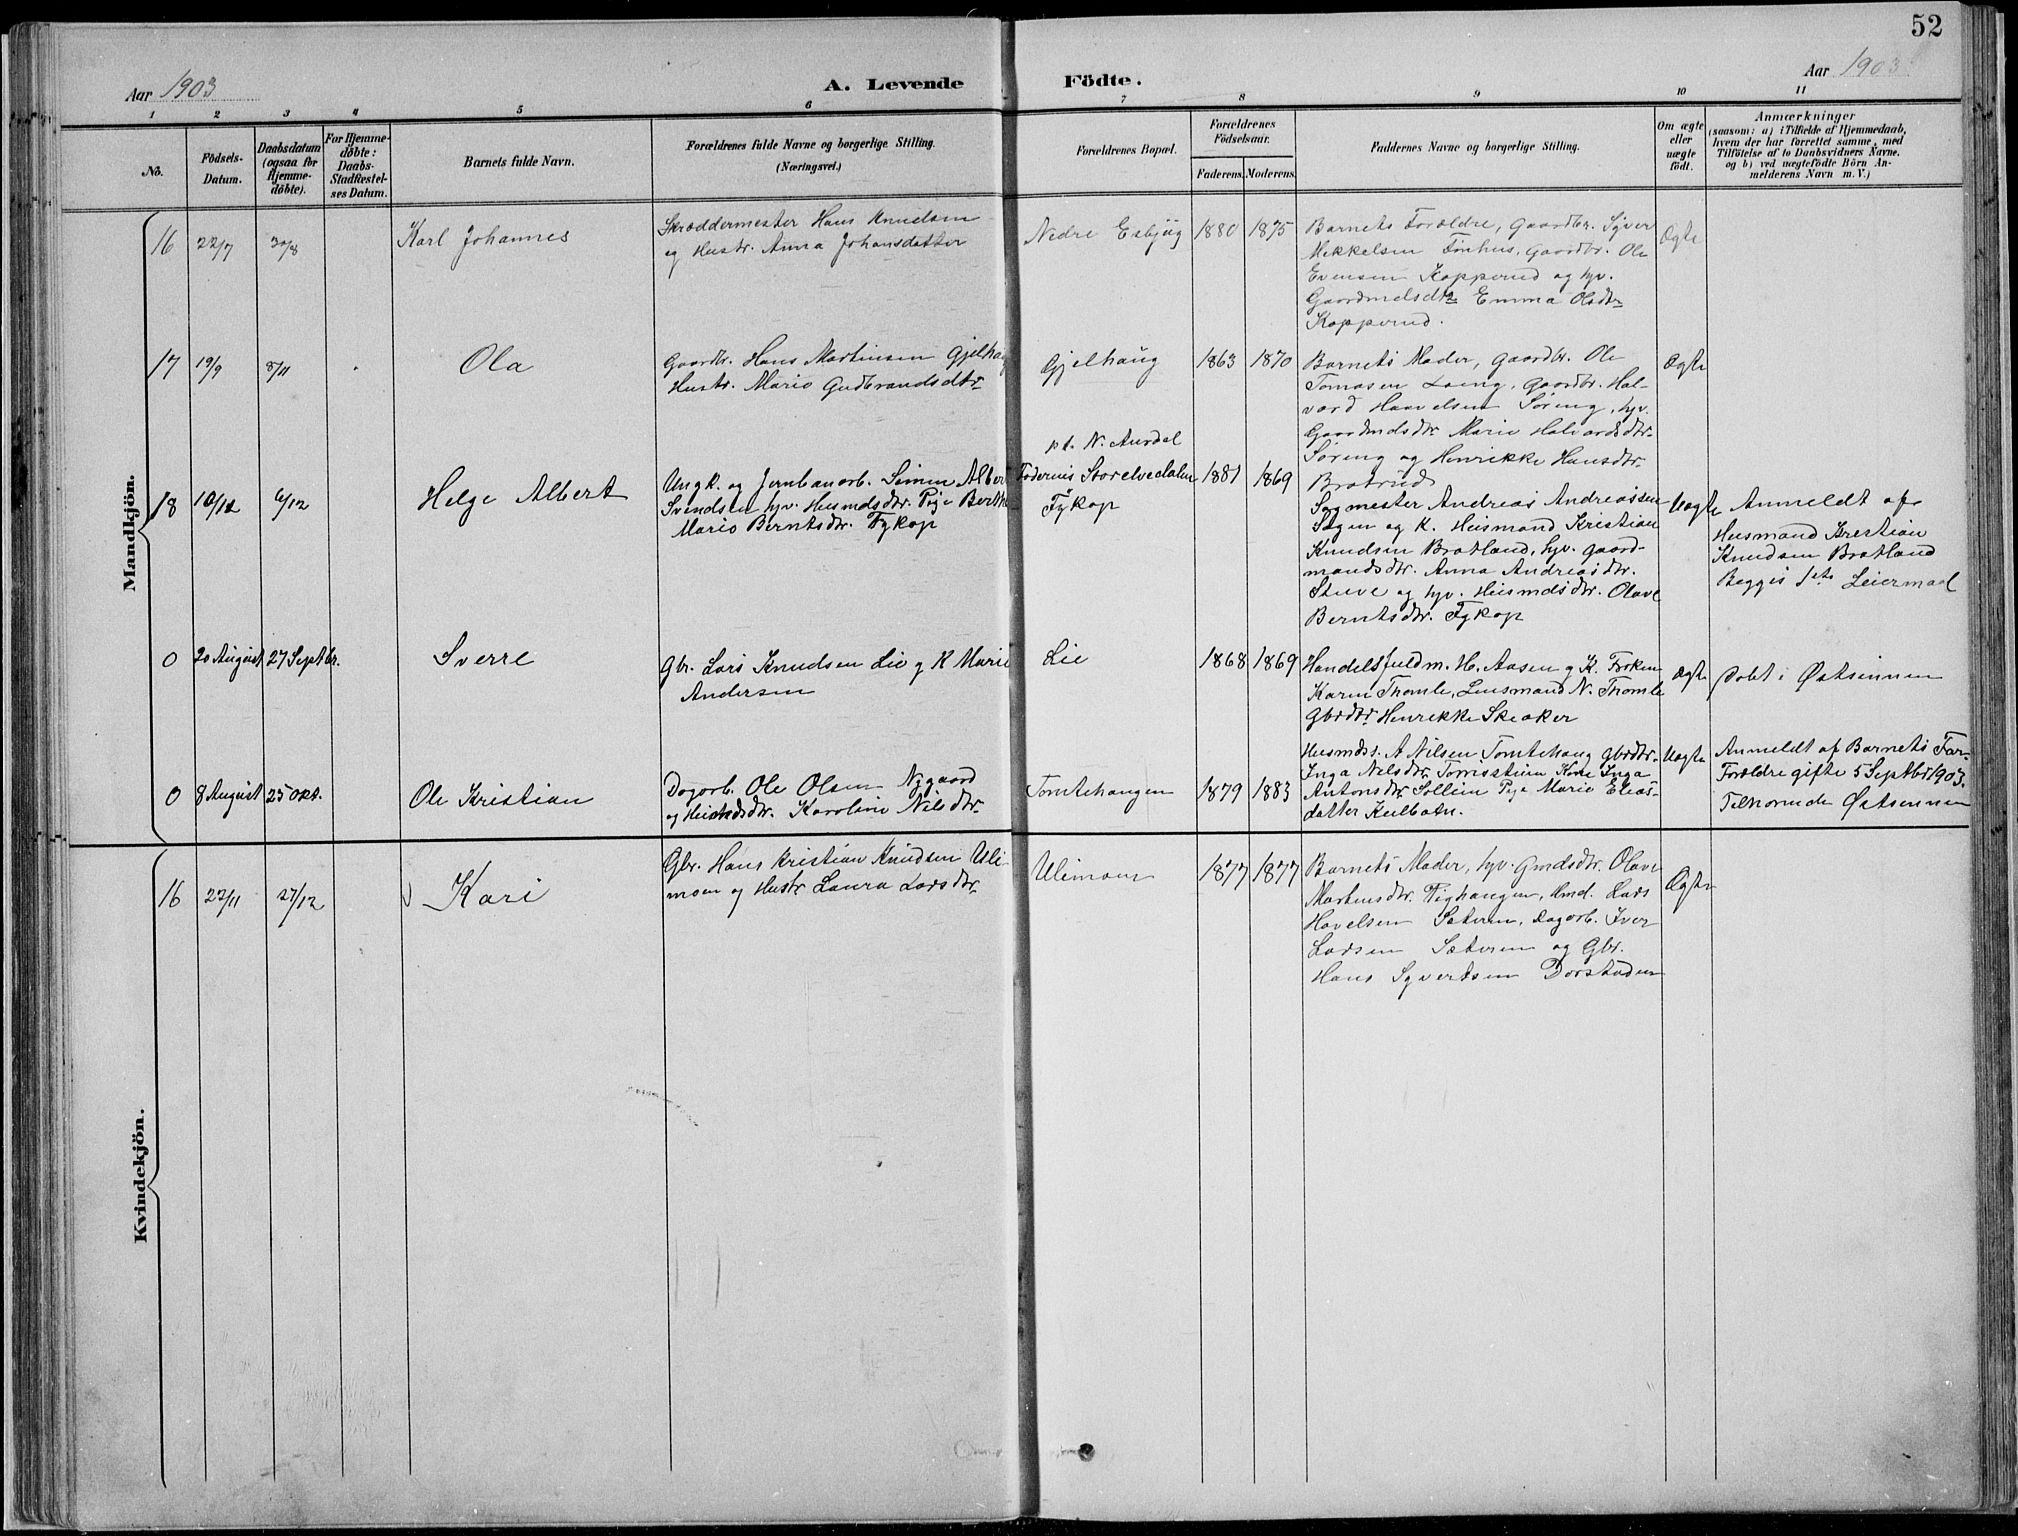 52
Aar 1903
A. Levende
Födte.
Aar 1903
1 2 3 4 5 6 7 8 9 10 11
No.
Födsels-
Datum.
Daabsdatum
(ogsaa for
Hjemme-
döbte).
For Hjemme-
döbte:
Daabs-
Stadfæstel-
ses Datum.
Barnets fulde Navn.
Forældrenes fulde Navne og borgerlige Stilling.
(Næringsvei.)
Forældrenes Bopæl.
Forældrenes
Födselsaar.
Faderens. Moderens.
Faddernes Navne og borgerlige Stilling.
Om ægte
eller
uægte
födt.
Anmærkninger
(saasom: a) i Tilfælde af Hjemmedaab,
hvem der har forrettet samme, med
Tilföielse af to Daabsvidners Navne,
og b) ved uægtefödte Börn An-
melderens Navn m. V.)
Mandkjön.
16 22/7 30/8 Karl Johannes
Skræddermester Hans Knudsen
og Hustr. Anna Johansdatter
Nedre Esbjüg 1880 1875
Barnets Forældre, Gaardbr. Syver
Mikkelsen Fønhus, Gaardbr. Ole
Evensen Kopperud og hjv.
Gaardmdsdtr. Emma Olsdtr.
Kopperud.
Ægte
17 19/9 8/11 Ola
Gaardbr. Hans Martinsen Gjelhaug
Hustr. Marie Gudbrandsdtr.
Gjelhaüg 1863 1870
Barnets Moder, Gaardbr. Ole
Tomasen Loeng, Gaardbr. Hal-
vard Haavelsen Søreng, hjv.
Gaardmdsdtr. Marie Halvardsdtr.
Søreng og Henrikke Hansdtr.
Bratrud
Ægte
18 10/12 6/12 Helge Albert
Ungk. og Jernbanarb. Simen Albert
Svendsen hjv. Husmdsdtr. Pige Berthe
Marie Berntsdtr. Fykop
pt. N. Aurdal
Faderens Storelvedalen
Fykop
1881 1869
Sagmester Andreas Andreassen
Sagen og K. Husmand Kristian
Knudsen Bratland, hjv. gaard-
mandsdtr. Anna Andreasdtr.
Stuve og hjv. Husmdsdtr. Olave
Berntsdtr. Fykop
Uægte
Anmeldt af
Husmand Krestian
Knudsen Bratland
Begges 1ste Leiermaal
0 20 August 27 Septbr. Sverre
Gbr. Lars Knudsen Lie og K Marie
Andersen
Lie 1868 1869
Handelsfuldm. H. Aasen og K. Frøken
Karen Thomle, Lensmand N. Thomle
Gbrdtr Henrikke Skiaker
Ægte
Døbt i Østsinnen
0 8 August 25 Okt. Ole Kristian
Dagarb. Ole Olsen Nygaard
og Husmdsdtr. Karoline Nilsdtr.
Tomtehaugen 1879 1883
Husmdss. A Nilsen Tomtehaug Gbrdtr.
Inga Nilsdtr. Kone Inga
Antonsdtr. Sollien Pige Marie Elias-
datter Kulbotn.
Uægte
Anmeldt af Barnets Far.
Forældre gifte 5 Septbr 1903.
Østsinnen
Kvindekjön.
16 22/11 27/12 Kari
Gbr. Hans Kristian Knudsen Uli-
moen og Hustr Laura Larsdtr.
Ulimoen 1877 1877
Barnets Moder, hjv. Gmdsdtr. Olave
Martinsdtr. Fighaugen, Hmd. Lars
Havelsen Sæteren, Dagarb. Iver
Larsen Sæteren og Gbr.
Hans Syvertsen Dorstuden
Ægte